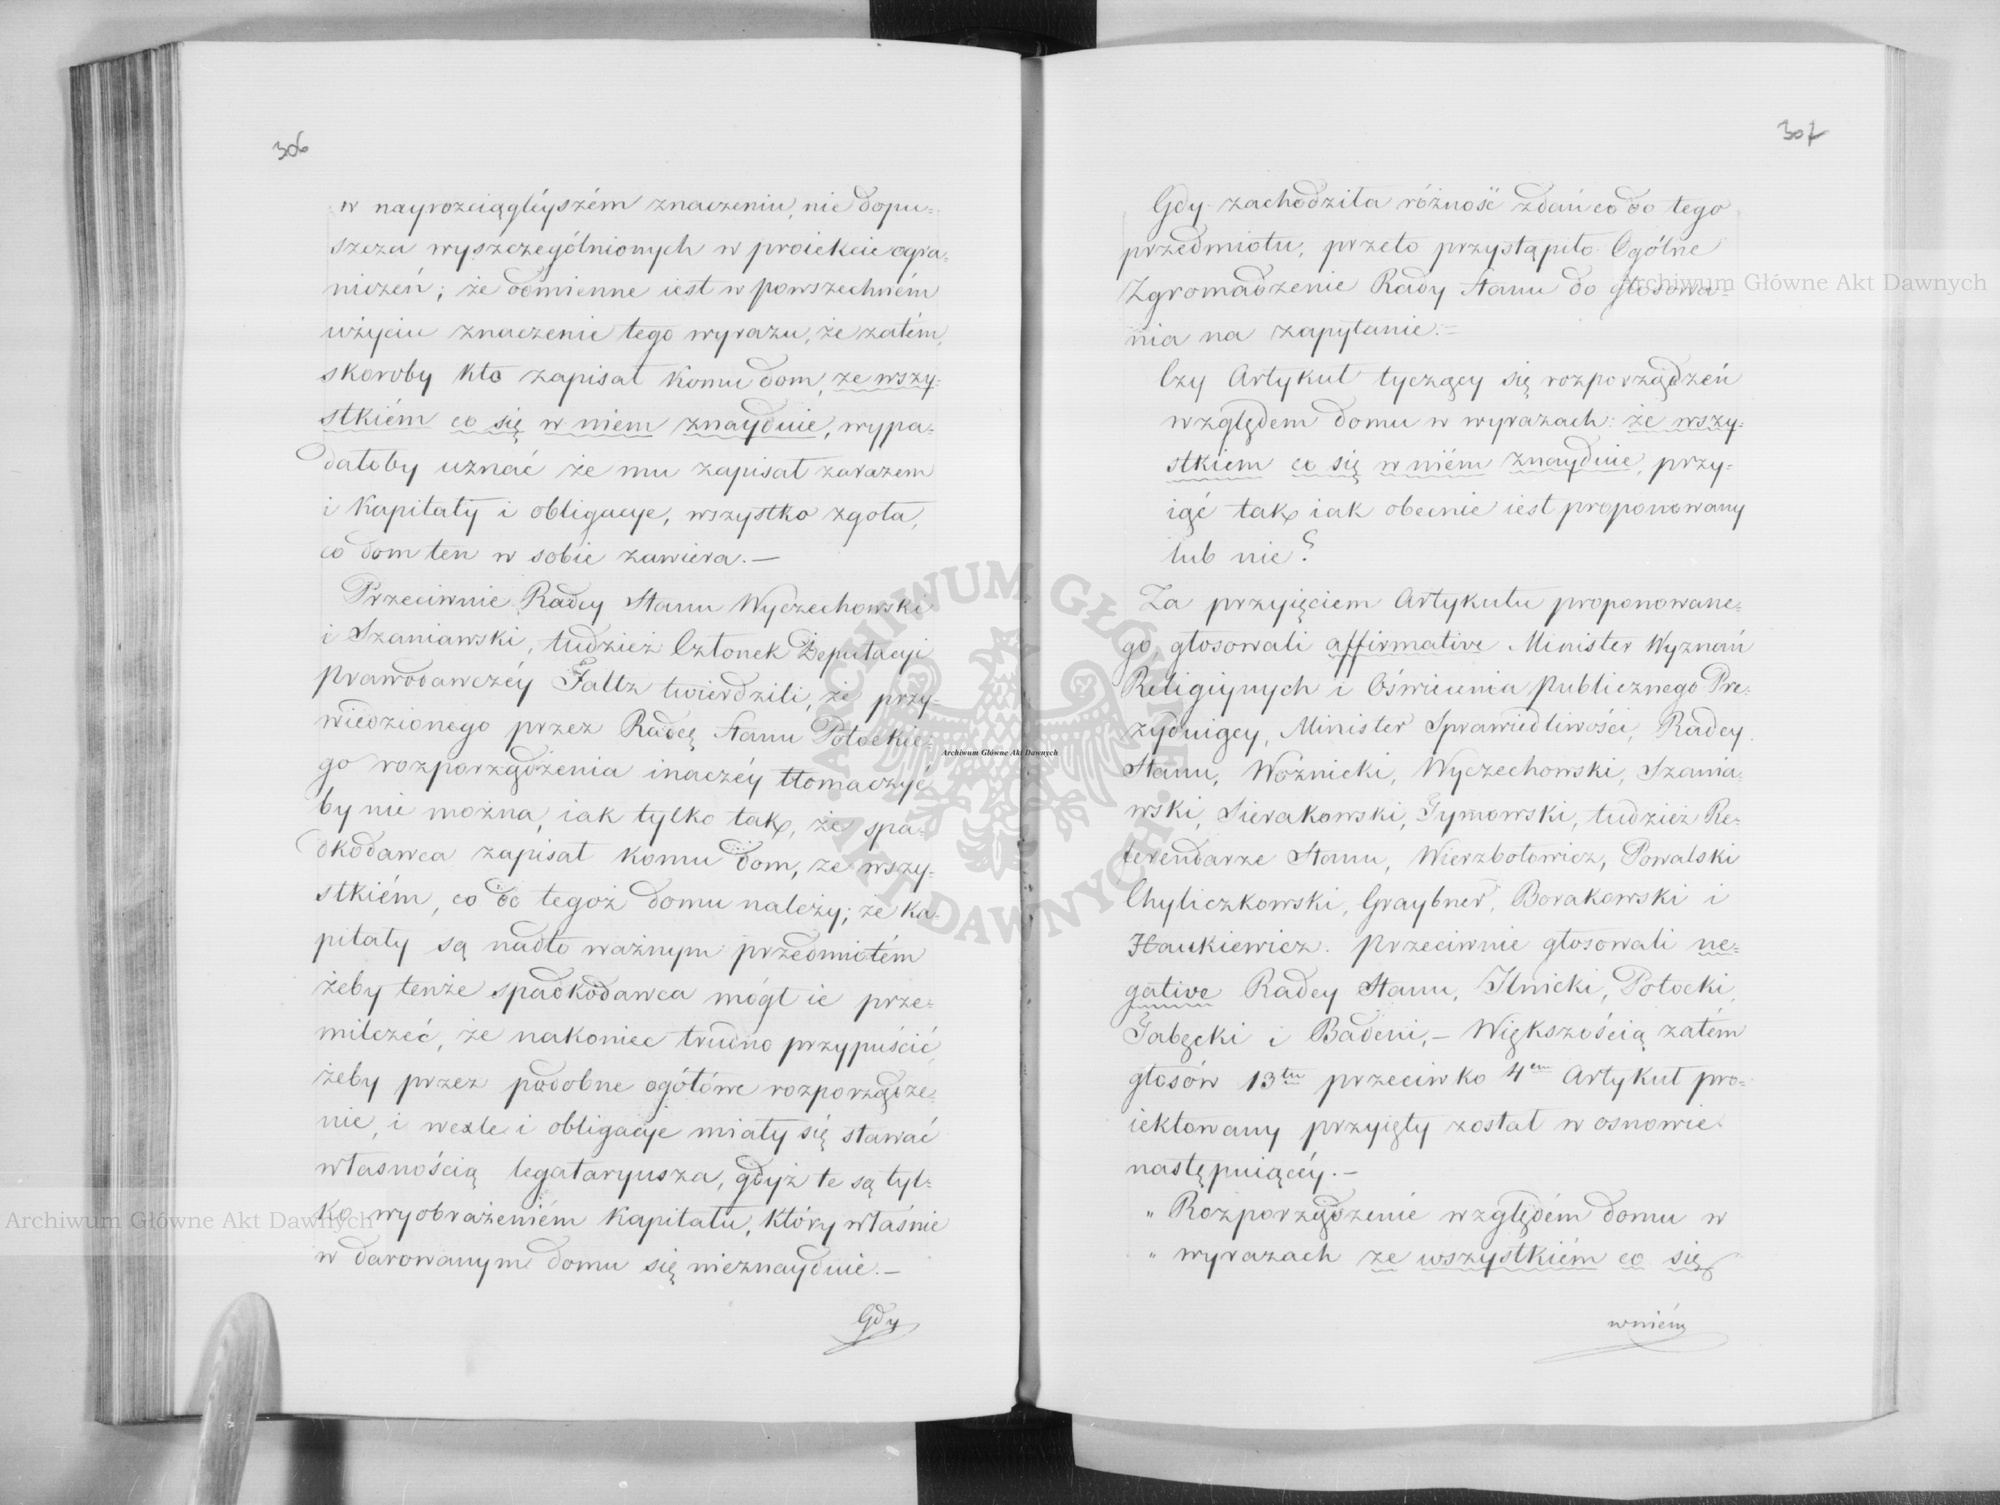 306
w nayrozciągléyszém znaczeniu, nie dopu-
szcza wyszczególnionych w proiekcie ogra-
niczeń; że odmienne iest w powszechném
użyciu znaczenie tego wyrazu, że zatém,
skoroby kto zapisał komu dom, ze wszy-
stkiém co się w niem znayduie, wypa-
dałoby uznać że mu zapisał zarazem
i kapitały i obligacye, wszystko zgoła,
co dom ten w sobie zawiera.—
Przeciwnie Radcy Stanu Wyczechowski
i Szaniawski, tudzież Członek Deputacyi
Prawodawczéy Faltz twierdzili, że przy-
wiedzionego przez Radcę Stanu Potockie-
go rozporządzenia inaczéy tłomaczyć
by nie można, iak tylko tak, że spa-
dkodawca zapisał komu dom, ze wszy-
stkiém, co do tegoż domu należy; że ka-
pitały są nadto ważnym przedmiotém
żeby tenże spadkodawca mógł ie prze-
milczeć, że nakoniec trudno przypuścić,
żeby przez podobne ogółowe rozporządze-
nie, i wexle i obligacye miały się stawać
własnością legataryusza, gdyż te są tyl-
ko wyobrażeniém kapitału, który właśnie
w darowanym domu się nieznayduie.—
Gdy
307
Gdy zachodziła różność zdań co do tego
przedmiotu; przeto przystąpiło Ogólne
Zgromadzenie Rady Stanu do głosowa-
nia na zapytanie:=
Czy Artykuł tyczący się rozporządzeń
względem domu w wyrazach: że wszy-
stkiem co się w niém znayduie, przy-
iąć tak iak obecnie iest proponowany
lub nie?
Za przyięciem Artykułu proponowane-
go głosowali affirmative Minister Wyznań
Religiynych i Oświecenia Publicznego Pre-
zyduiący, Minister Sprawiedliwości, Radcy
Stanu, Woźnicki, Wyczechowski, Szania-
wski, Sierakowski, Tymowski, tudzież Re-
ferendarze Stanu, Wierzbołowicz, Powalski
Chyliczkowski, Graybner, Borakowski i
Hankiewicz. Przeciwnie głosowali ne-
gative Radcy Stanu, Ilnicki, Potocki,
Gabęcki i Badeni,— Większością zatém
głosów 13tu przeciwko 4em Artykuł pro-
iektowany przyięty został w osnowie
następuiącéy.—
„ Rozporządzenie względém domu w
„ wyrazach ze wszystkiém co się
w niém
Archiwum Główne Akt Dawnych
Archiwum Główne Akt Dawnych
Archiwum Główne Akt Dawnych
ARCHIWUM GŁÓWNE AKT DAWNYCH